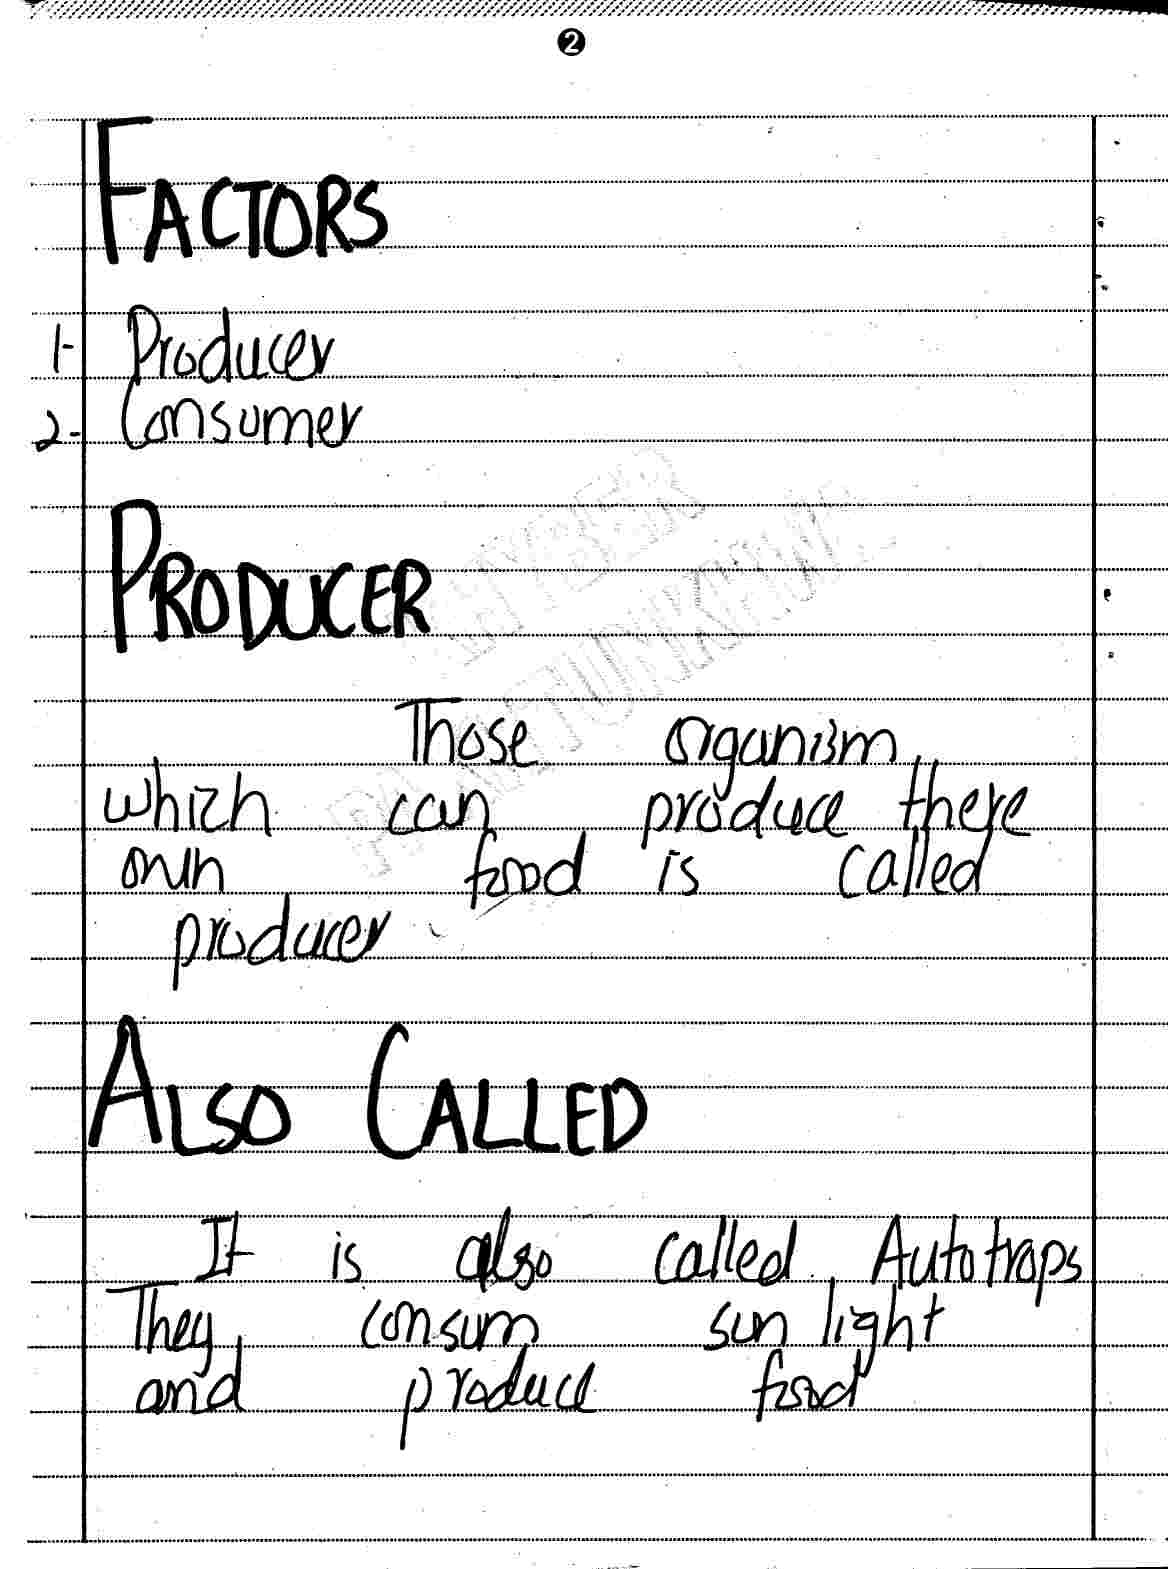 2
FACTORS
1- Producer
2- Consumer
KHYBER
PAKHTUNKHWA
PRODUCER
Those organism
which can produce there
own food is called
producer
ALSO CALLED
It is also called Autotraps
They consum sun light
and produce food